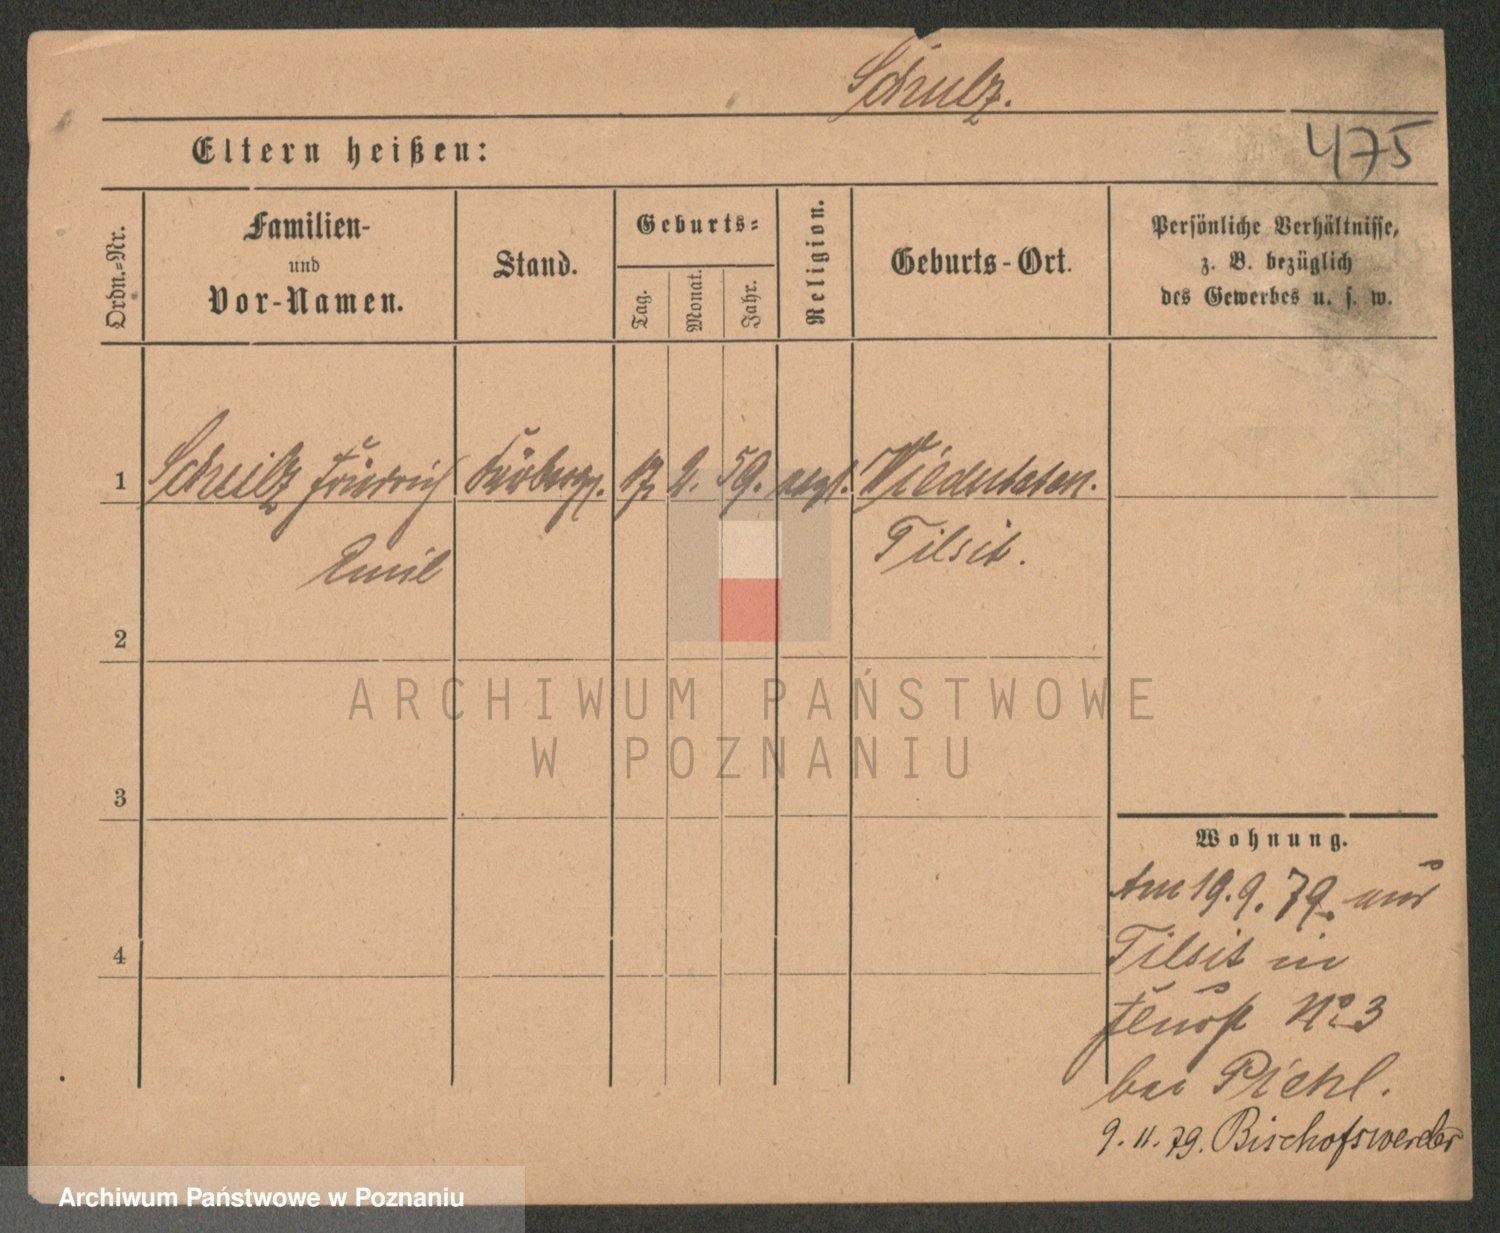 Schulz.
475
Eltern heißen:
Ordn.-Nr.
Familien-
und
Vor-Namen.
Stand.
Geburts-
Tag.
Monat.
Jahr.
Religion.
Geburts-Ort.
Persönliche Verhältnisse,
z. B. bezüglich
des Gewerbes u. s. w.
1 Schulz Friedrich 17. 2. 59. evgl.
Emil
Tilsit.
2
ARCHIWUM PAŃSTWOWE
W POZNANIU
3
4
Wohnung.
Am 19. 9. 79. aus
Tilsit in
No 3
bei
9. 11. 79. Bischofswerder
Archiwum Państwowe w Poznaniu